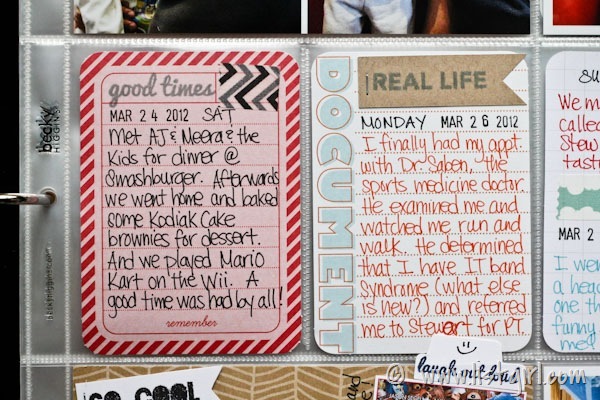 becky
HIGGINS
good times
MAR 24 2012 SAT
Met AJ & Neera & the
Kids for dinner @
Smashburger. Afterwards
we went home and baked
some Kodiak Cake
brownies for dessert.
And we played Mario
Kart on the Wii. A
good time was had by all!
remember
DOCUMENT
REAL LIFE
MONDAY MAR 26 2012
I finally had my appt.
with Dr. Saben, the
sports medicine doctor.
He examined me and
watched me run and
walk. He determined
that I have IT band
Syndrome (what else
is new?) and referred
me to Stewart for PT.
SU
We m
called
Stew
tast
MAR 2
I wen
a hea
one th
funny
med
SO COOL
laugh out loud